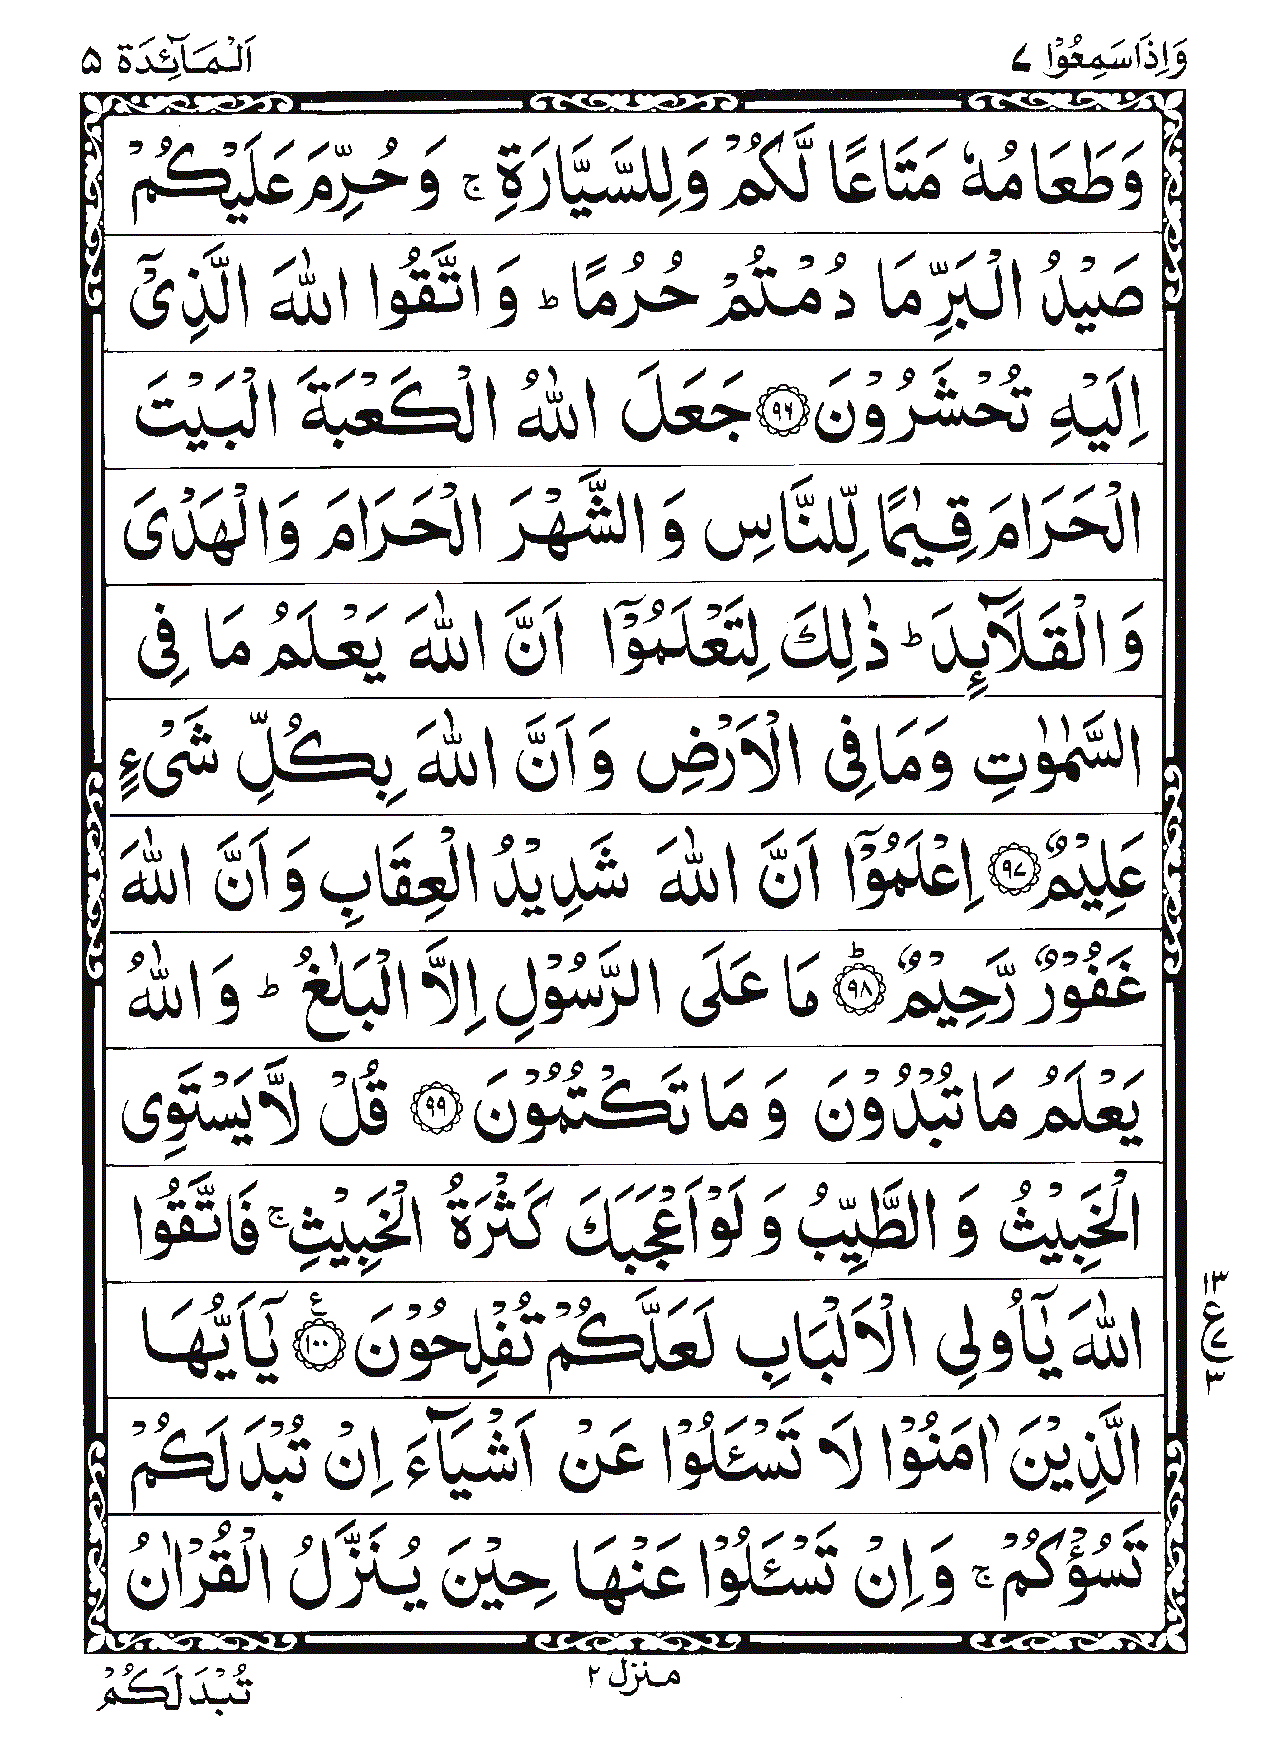 وَاِذَاسَمِعُوْا ٧
اَلْمَآئِدَة ۵
وَطَعَامُهٗ مَتَاعًا لَّكُمْ وَلِلسَّيَّارَةِ ۚ وَحُرِّمَ عَلَيْكُمْ
صَيْدُ الْبَرِّ مَا دُمْتُمْ حُرُمًا ؕ وَاتَّقُوا اللّٰهَ الَّذِىْۤ
اِلَيْهِ تُحْشَرُوْنَ ﴿۹۶﴾ جَعَلَ اللّٰهُ الْكَعْبَةَ الْبَيْتَ
الْحَرَامَ قِيٰمًا لِّلنَّاسِ وَالشَّهْرَ الْحَرَامَ وَالْهَدْىَ
وَالْقَلَآئِدَ ؕ ذٰلِكَ لِتَعْلَمُوْۤا اَنَّ اللّٰهَ يَعْلَمُ مَا فِى
السَّمٰوٰتِ وَمَا فِى الْاَرْضِ وَاَنَّ اللّٰهَ بِكُلِّ شَىْءٍ
عَلِيْمٌ ﴿۹۷﴾ اِعْلَمُوْۤا اَنَّ اللّٰهَ شَدِيْدُ الْعِقَابِ وَاَنَّ اللّٰهَ
غَفُوْرٌ رَّحِيْمٌ ؕ﴿۹۸﴾ مَا عَلَى الرَّسُوْلِ اِلَّا الْبَلٰغُ ؕ وَاللّٰهُ
يَعْلَمُ مَا تُبْدُوْنَ وَمَا تَكْتُمُوْنَ ﴿۹۹﴾ قُلْ لَّا يَسْتَوِى
الْخَبِيْثُ وَالطَّيِّبُ وَلَوْ اَعْجَبَكَ كَثْرَةُ الْخَبِيْثِ ۚ فَاتَّقُوا
اللّٰهَ يٰۤاُولِى الْاَلْبَابِ لَعَلَّكُمْ تُفْلِحُوْنَ ﴿۱۰۰﴾ ع يٰۤاَيُّهَا
١٣
ع
٧
٣
الَّذِيْنَ اٰمَنُوْا لَا تَسْئَلُوْا عَنْ اَشْيَآءَ اِنْ تُبْدَ لَكُمْ
تَسُؤْكُمْ ۚ وَاِنْ تَسْئَلُوْا عَنْهَا حِيْنَ يُنَزَّلُ الْقُرْاٰنُ
منزل ۲
تُبْدَ لَكُمْ